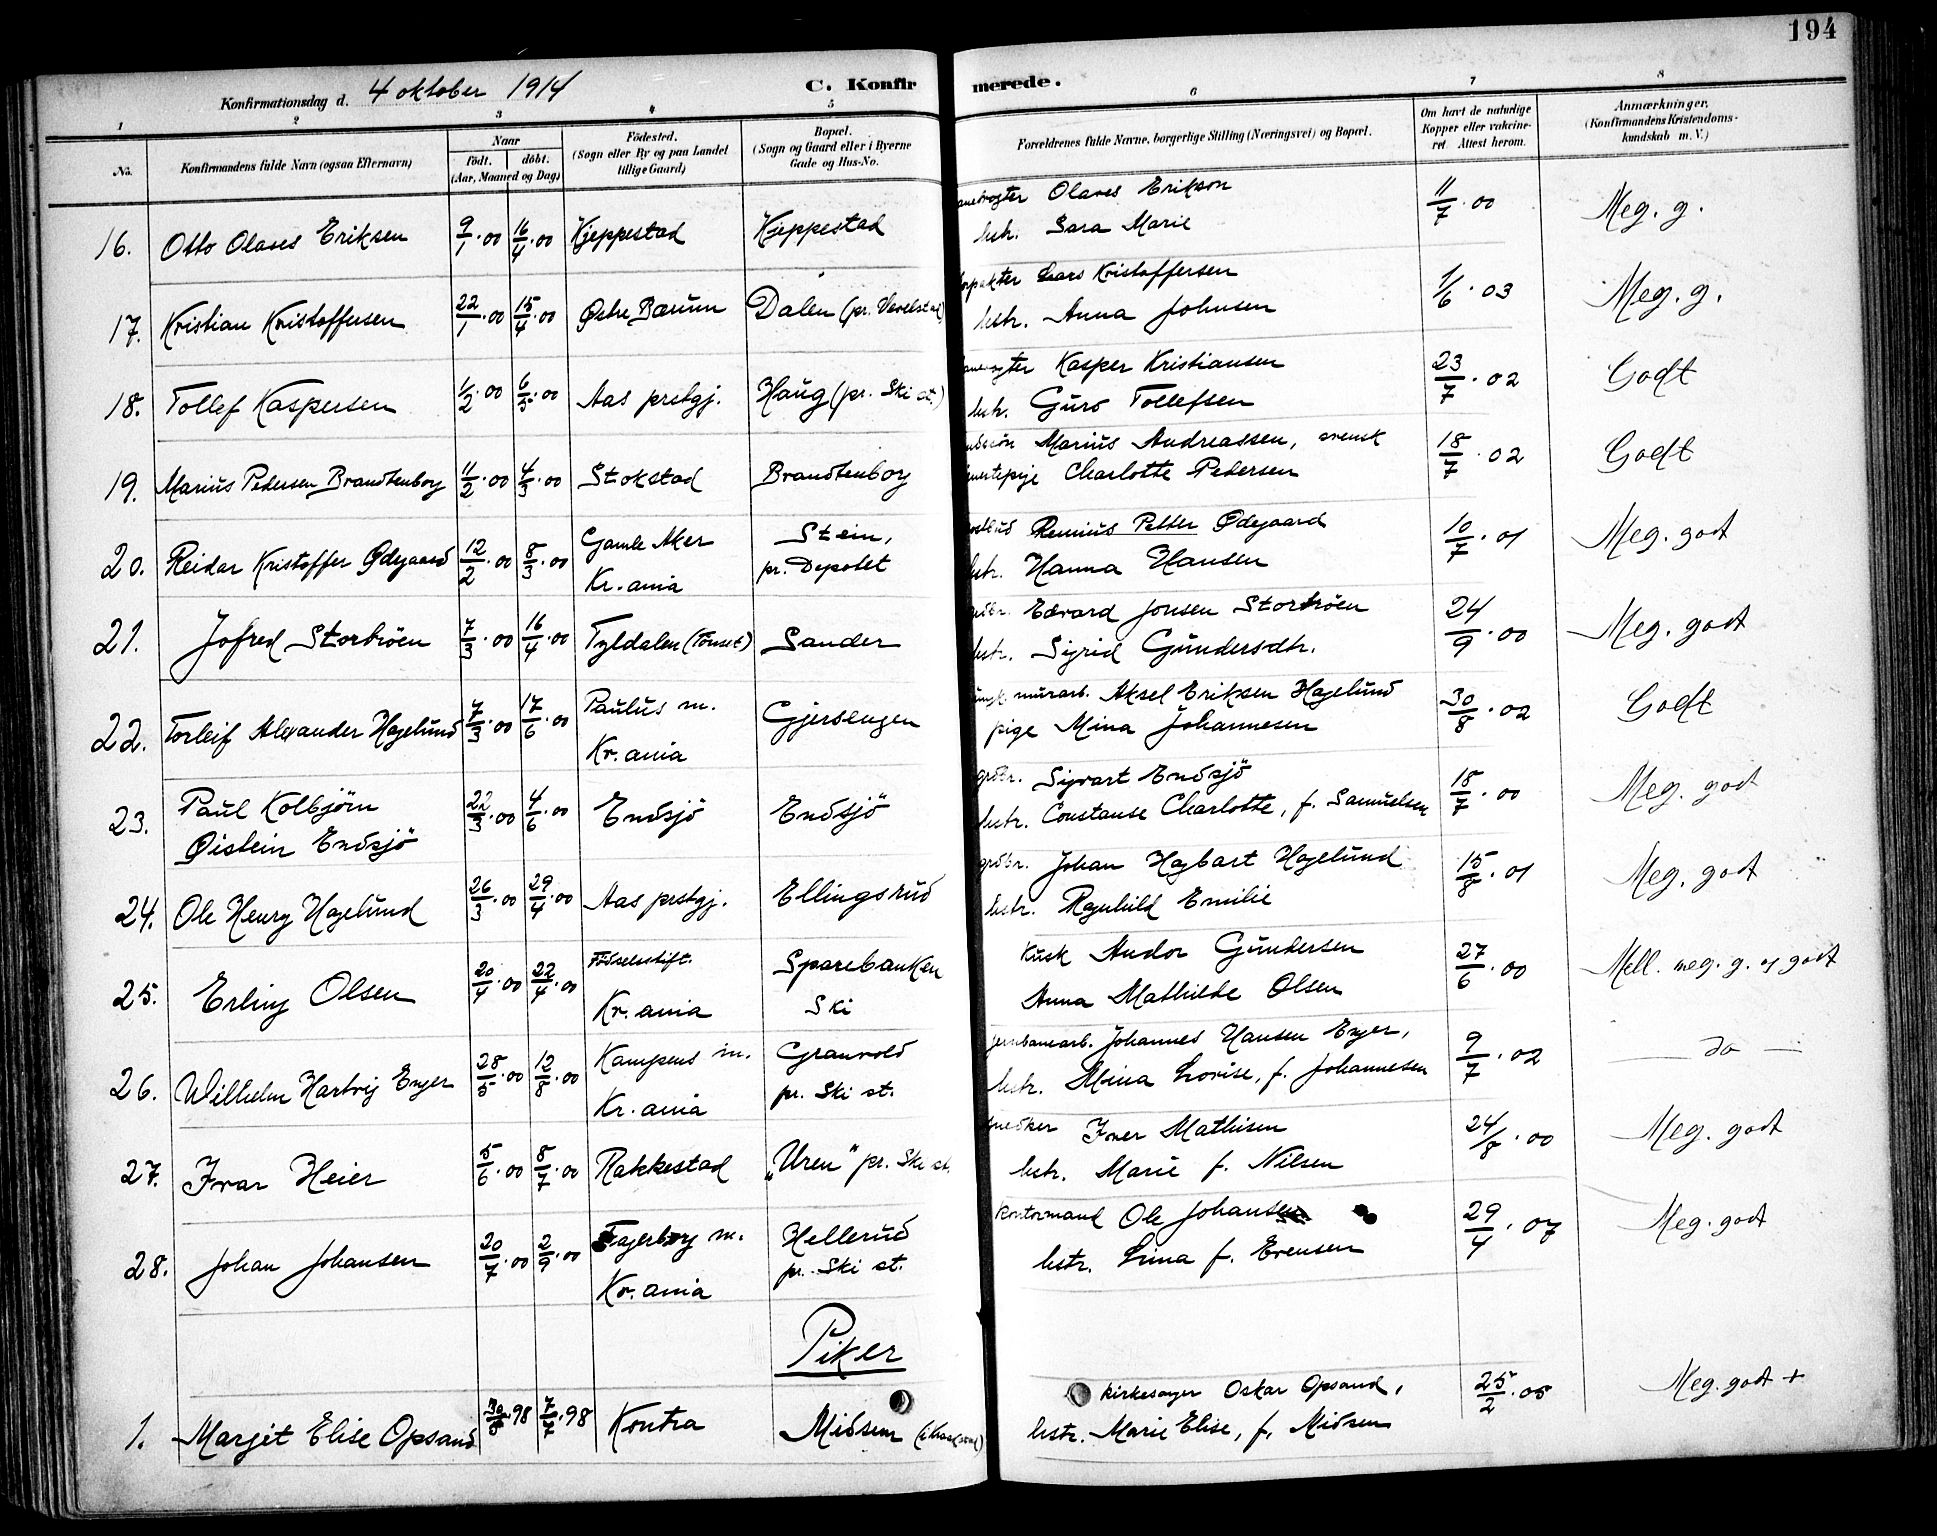 194
Konfirmationsdag d. 4 oktober 1914
C. Konfirmerede.
1 2 3 4 5 6 7 8
No. Konfirmandens fulde Navn (ogsaa Efternavn) Naar født. døbt. (Aar, Maaned og Dag) Fødested. (Sogn eller By og paa Landet tillige Gaard) Bopæl. (Sogn og Gaard eller i Byerne Gade og Hus-No. Forældrenes fulde Navne, borgerlige Stilling (Næringsvei) og Bopæl. Om havt de naturlige Kopper eller vakcineret. Attest herom. Anmærkninger. (Konfirmandens Kristendomskundskab m. V.)
16. Otto Olaves Eriksen 9/1·00 16/4·00 Kjeppestad Kjeppestad Olaves Erikson 11/7·00 Meg. g.
hstr. Sara Marie
17. Kristian Kristoffersen 22/1·00 15/4·00 Østre Bærum Dalen (pr. Vevelstad) Lars Kristoffersen 1/6·03 Meg. g.
hstr. Anna Johnsen
18. Tollef Kaspersen 1/2·00 6/5·00 Aas prstgj. Haug (pr. Ski st.) Kasper Kristiansen 23/7·02 Godt
hstr. Guro Tollefsen
19. Marius Pedersen Brandtenborg 11/2·00 4/3·00 Stokstad Brandtenborg Marius Andreassen, svensk 18/7·02 Godt
Charlotte Pedersen
20. Reidar Kristoffer Ødegaard 12/2·00 8/3·00 Gamle Aker Kr.ania Stein, pr. Depotet Remius Petter Ødegaard 10/7·01 Meg. godt
hstr. Hanna Hansen
21. Jofred Storbrøen 7/3·00 16/4·00 Tyldalen (Tönset) Sander Edvard Jonsen Storbrøen 24/9·00 Meg. godt
hstr. Sigrid Gundersdtr.
22. Torleif Alexander Hagelund 7/3·00 17/6·00 Paulus m. Kr.ania Gjersengen murarb. Aksel Eriksen Hagelund 30/8·02 Godt
pige Mina Johannesen
23. Paul Kolbjörn Øistein Endsjö 22/3·00 4/6·00 Endsjö Endsjö grdbr. Sigvart Endsjö 18/7·00 Meg. godt
hstr. Constanse Charlotte, f. Samuelsen
24. Ole Henry Hagelund 26/3·00 29/4·00 Aas prstgj. Ellingsrud grdbr. Johan Hagbart Hagelund 15/8·01 Meg. godt
hstr. Ragnhild Emilie
25. Erling Olsen 20/4·00 22/4·00 Födselsstift. Kr.ania Sparebanken Ski Kusk Andor Gundersen 27/6·00 Mell. meg. g. og godt
Anna Mathilde Olsen
26. Wilhelm Hartvig Enger 28/5·00 12/8·00 Kampens m. Kr.ania Granvold pr. Ski st. jernbanearb. Johannes Hansen Enger, 9/7·02 — do —
hstr. Mina Lovise, f. Johannesen
27. Ivar Heier 5/6·00 8/7·00 Rakkestad „Uren" pr. Ski st. snedker Iver Mathisen 24/8·00 Meg. godt
hstr. Marie f. Nilsen
28. Johan Johansen 20/7·00 2/9·00 Fagerborg m. Kr.ania Hellerud pr. Ski st. kontormand Ole Johansen 29/4·07 Meg. godt
hstr. Lina f. Evensen
Piker
1. Margit Elise Opsand 30/5·98 7/7·98 Kontra Midsem kirkesanger Oskar Opsand, 25/2·05 Meg. godt +
hstr. Marie Elise, f. Midsem